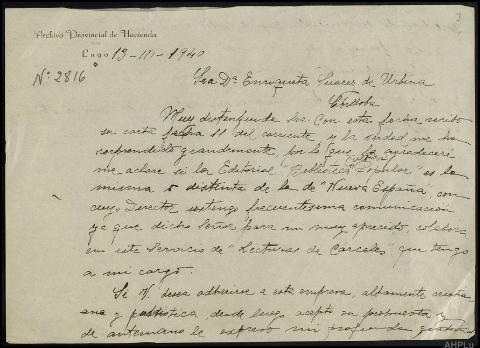 3
Archivo Provincial de Hacienda
Lugo 13-III-1940
Nº 2816
Sra Dª Enriqueta Suarez de Urbina
Córdoba
Muy distinguida Sra: Con esta fecha recibo
su carta fecha 11 del corriente y la verdad me ha
sorprendido grandemente, por lo que le agradeceré
me aclare si la Editorial "Biblioteca Popular" es la
misma o distinta de la de "Nueva España" con
cuyo Director sostengo frecuentisima comunicación
ya que dicho Señor para mi muy apreciado, colabora
en este Servicio de "Lecturas de Carceles" que tengo
a mi cargo.
Si V. desea adherirse a esta empresa, altamente cristia
ana y patriotica, desde luego acepto su propuesta y
de antemano le expreso mi profunda gratitud
AHPLu